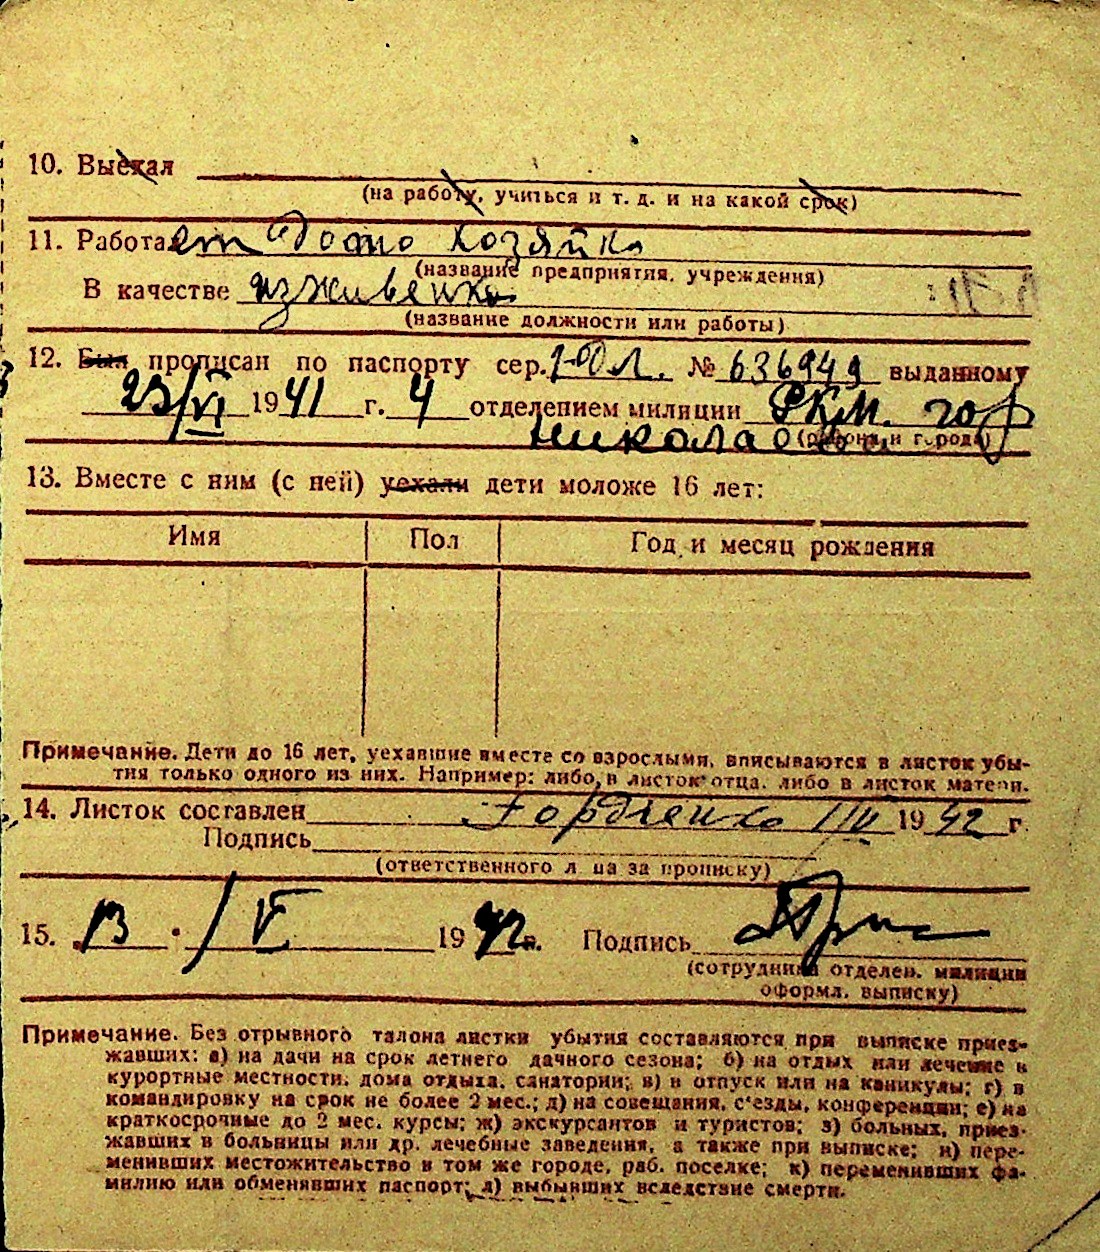 10. Выехал
(на работу, учиться и т. д. и на какой срок)
11. Работает Домо хозяйка
(название предприятия, учреждения)
В качестве изживенка
(название должности или работы)
12. Был прописан по паспорту сер. № 636949 выданному
23/VI 1941 г. 4 отделением милиции РКМ. гор
Николаева
(района и города)
13. Вместе с ним (с ней) уехали дети моложе 16 лет:
Имя Пол Год и месяц рождения
Примечание. Дети до 16 лет, уехавшие вместе со взрослыми, вписываются в листок убы-
тия только одного из них. Например: либо в листок отца, либо в листок матери.
14. Листок составлен 1942 г.
Подпись
(ответственного лица за прописку)
15. 13 / V 1942 г. Подпись
(сотрудника отделен. милиции
оформл. выписку)
Примечание. Без отрывного талона листки убытия составляются при выписке приез-
жавших: а) на дачи на срок летнего дачного сезона; б) на отдых или лечение в
курортные местности, дома отдыха, санатории; в) в отпуск или на каникулы; г) в
командировку на срок не более 2 мес.; д) на совещания, с'езды, конференции; е) на
краткосрочные до 2 мес. курсы; ж) экскурсантов и туристов; з) больных, приез-
жавших в больницы или др. лечебные заведения, а также при выписке; и) пере-
менивших местожительство в том же городе, раб. поселке; к) переменивших фа-
милию или обменявших паспорт; л) выбывших вследствие смерти.